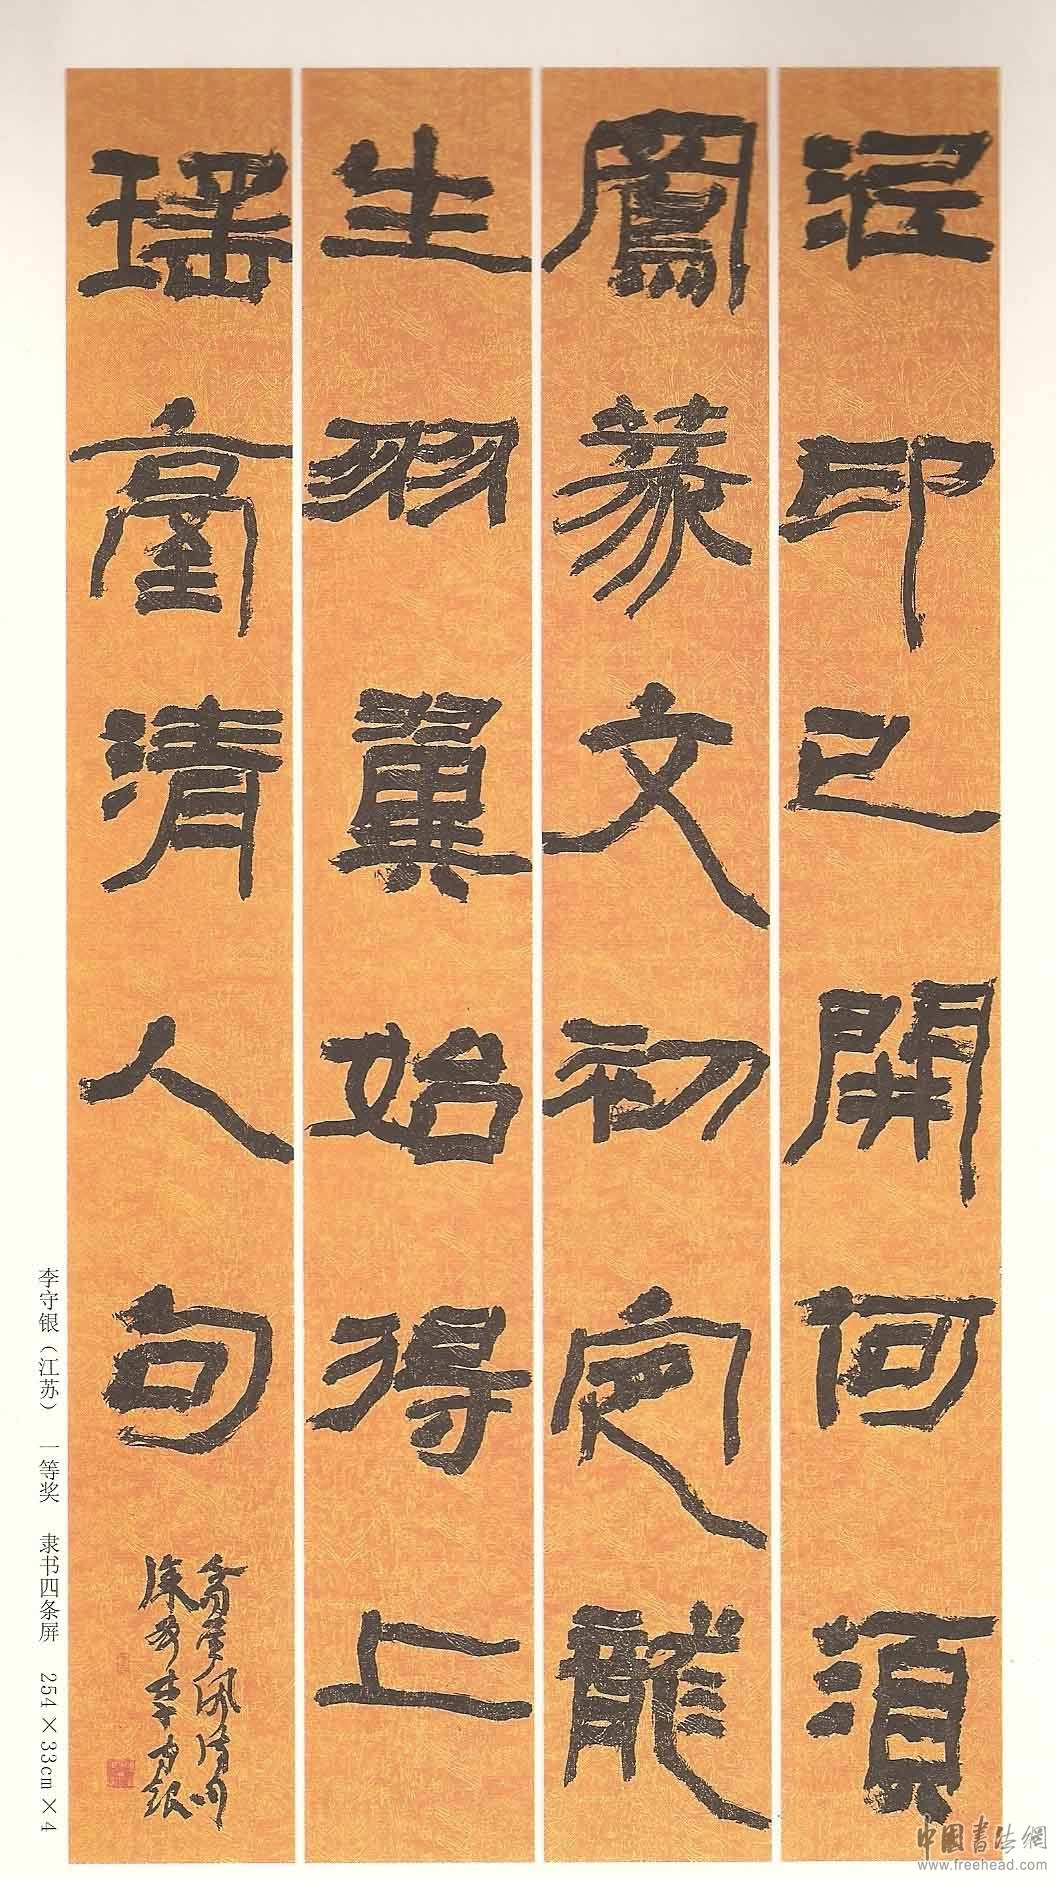 泥印已開何須
鳳篆文初定龍
生羽翼始得上
瑶臺清人句
李守银
李守银（江苏） 一等奖 隶书四条屏 254×33cm×4
中国书法網
www.freehead.com